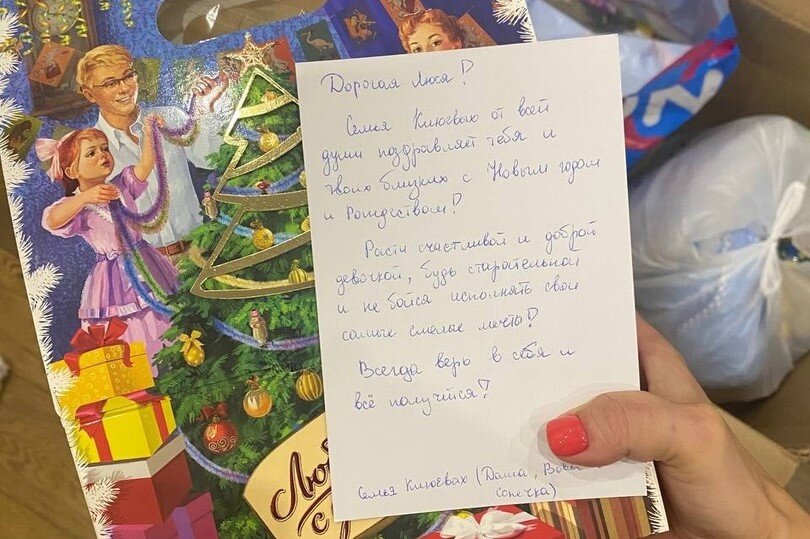 Дорогая Люся!
Семья Клюевых от всей
души поздравляет тебя и
твоих близких с Новым годом
и Рождеством!
Расти счастливой и доброй
девочкой, будь старательной
и не бойся исполнять свои
самые смелые мечты!
Всегда верь в себя и
всё получится!
Семья Клюевах (Даша, Вова
Сонечка)
с